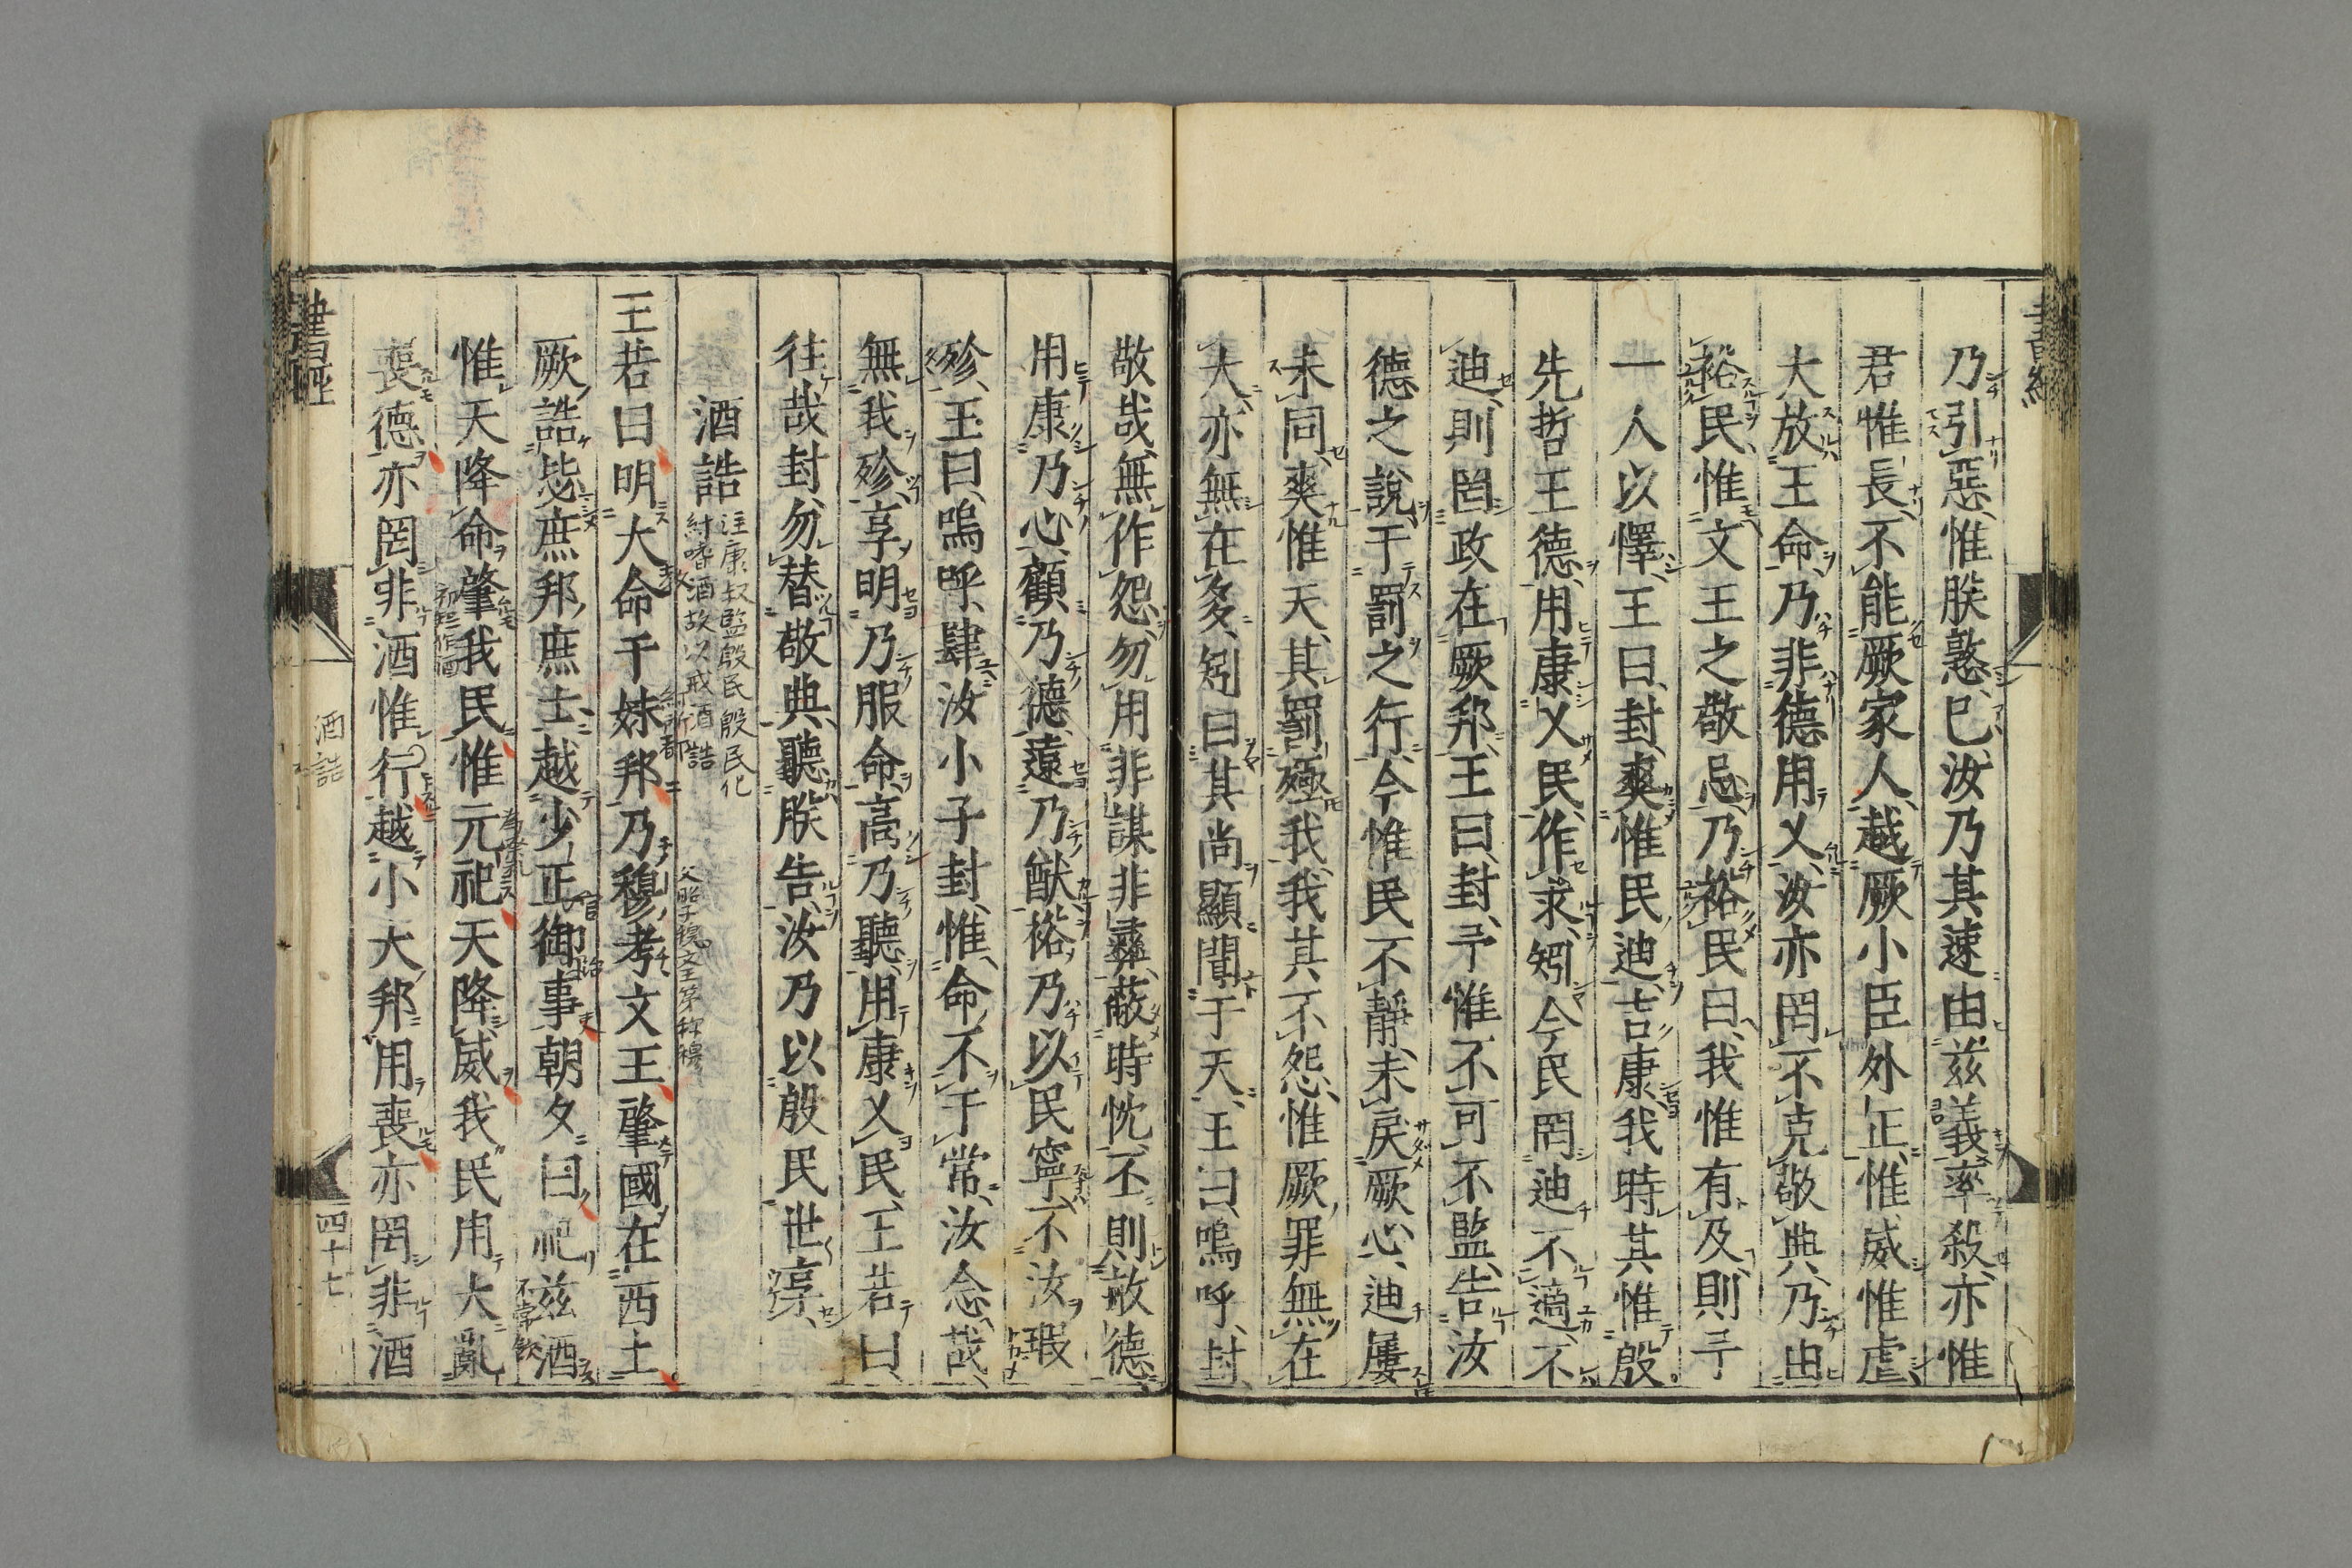 乃引惡惟朕憝已汝乃其速由兹義率殺亦惟
君惟長不能厥家人越厥小臣外正惟威惟虐
大放王命乃非德用乂汝亦罔不克敬典乃由
裕民惟文王之敬忌乃裕民曰我惟有及則予
一人以懌王曰封爽惟民迪吉康我時其惟殷
先哲王德用康乂民作求矧今民罔迪不適不
迪則罔政在厥邦王曰封予惟不可不監告汝
德之說于罰之行今惟民不靜未戾厥心迪屢
未同爽惟天其罰殛我我其不怨惟厥罪無在
大亦無在多矧曰其尚顯聞于天王曰嗚呼封
敬哉無作怨勿用非謀非彝蔽時忱丕則敏德
用康乃心顧乃德遠乃猷裕乃以民寧不汝瑕
殄王曰嗚呼肆汝小子封惟命不于常汝念哉
無我殄享明乃服命高乃聽用康乂民王若曰
往哉封勿替敬典聽朕告汝乃以殷民世享
酒誥
注康叔監殷民殷民化
紂嗜酒故以戒酒誥
王若曰明大命于妹邦乃穆考文王肇國在西土
厥誥毖庶邦庶士越少正御事朝夕曰祀兹酒
惟天降命肇我民惟元祀天降威我民用大亂
喪德亦罔非酒惟行越小大邦用喪亦罔非酒
書經
酒誥
四十七